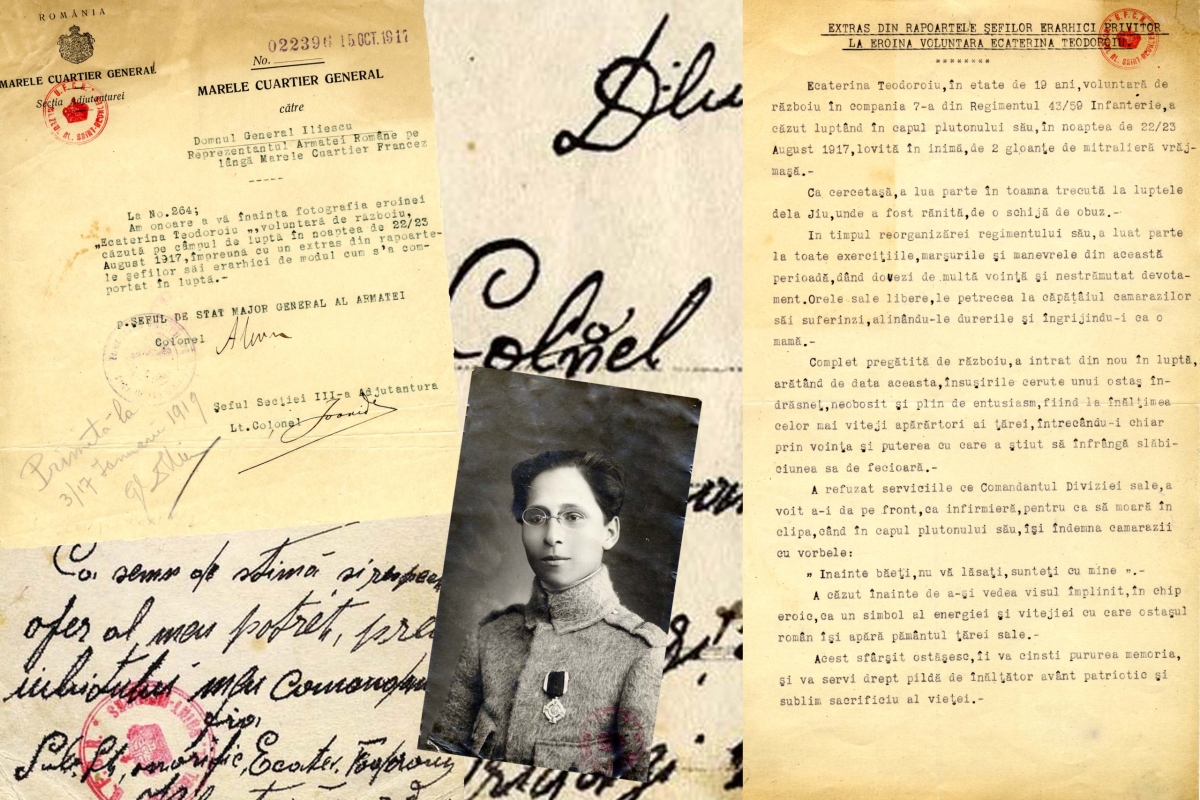 ROMÂNIA
MARELE CUARTIER GENERAL
Secția Adjutanturei
022396 15 OCT. 1917
No.
MARELE CUARTIER GENERAL
către
Domnul General Iliescu
Reprezentantul Armatei Române pe
lângă Marele Cuartier Francez
-----
La No.264;
Am onoare a vă înainta fotografia eroinei
„Ecaterina Teodoroiu „,voluntară de războiu,
căzută pe câmpul de luptă în noaptea de 22/23
August 1917,împreună cu un extras din rapoarte-
le șefilor săi erarhici de modul cum s'a com-
portat în luptă.-
p.ȘEFUL DE STAT MAJOR GENERAL AL ARMATEI
Colonel
Șeful Secției III-a Adjutantura
Lt.Colonel
Primită la
3/17 Ianuarie 1919
Ca semn de stimă și
ofer al meu potret,
iubitului meu
Colonel
EXTRAS DIN RAPOARTELE ȘEFILOR ERARHICI PRIVITOR
LA EROINA VOLUNTARA ECATERINA TEODOROIU.
********
Ecaterina Teodoroiu,în etate de 19 ani,voluntară de
războiu în compania 7-a din Regimentul 43/59 Infanterie,a
căzut luptând în capul plutonului său,în noaptea de 22/23
August 1917,lovită în inimă,de 2 gloanțe de mitralieră vrăj-
mașă.-
Ca cercetașă,a lua parte în toamna trecută la luptele
dela Jiu,unde a fost rănită,de o schijă de obuz.-
In timpul reorganizărei regimentului său,a luat parte
la toate exercițiile,marșurile și manevrele din această
perioadă,dând dovezi de multă voință și nestrămutat devota-
ment.Orele sale libere,le petrecea la căpătâiul camarazilor
săi suferinzi,alinându-le durerile și îngrijindu-i ca o
mamă.-
Complet pregătită de războiu,a intrat din nou în luptă,
arătând de data aceasta,însușirile cerute unui ostaș în-
drăsneț,neobosit și plin de entusiasm,fiind la înălțimea
celor mai viteji apărărtori ai țărei,întrecându-i chiar
prin voința și puterea cu care a știut să înfrângă slăbi-
ciunea sa de fecioară.-
A refuzat serviciile ce Comandantul Diviziei sale,a
voit a-i da pe front,ca infirmieră,pentru ca să moară în
clipa,când în capul plutonului său,își îndemna camarazii
cu vorbele:
„ Inainte băeți,nu vă lăsați,sunteți cu mine ".-
A căzut înainte de a-și vedea visul împlinit,în chip
eroic,ca un simbol al energiei și vitejiei cu care ostașul
român își apără pământul țărei sale.-
Acest sfârșit ostășesc,îi va cinsti pururea memoria,
și va servi drept pildă de înălțător avânt patriotic și
sublim sacrificiu al vieței.-